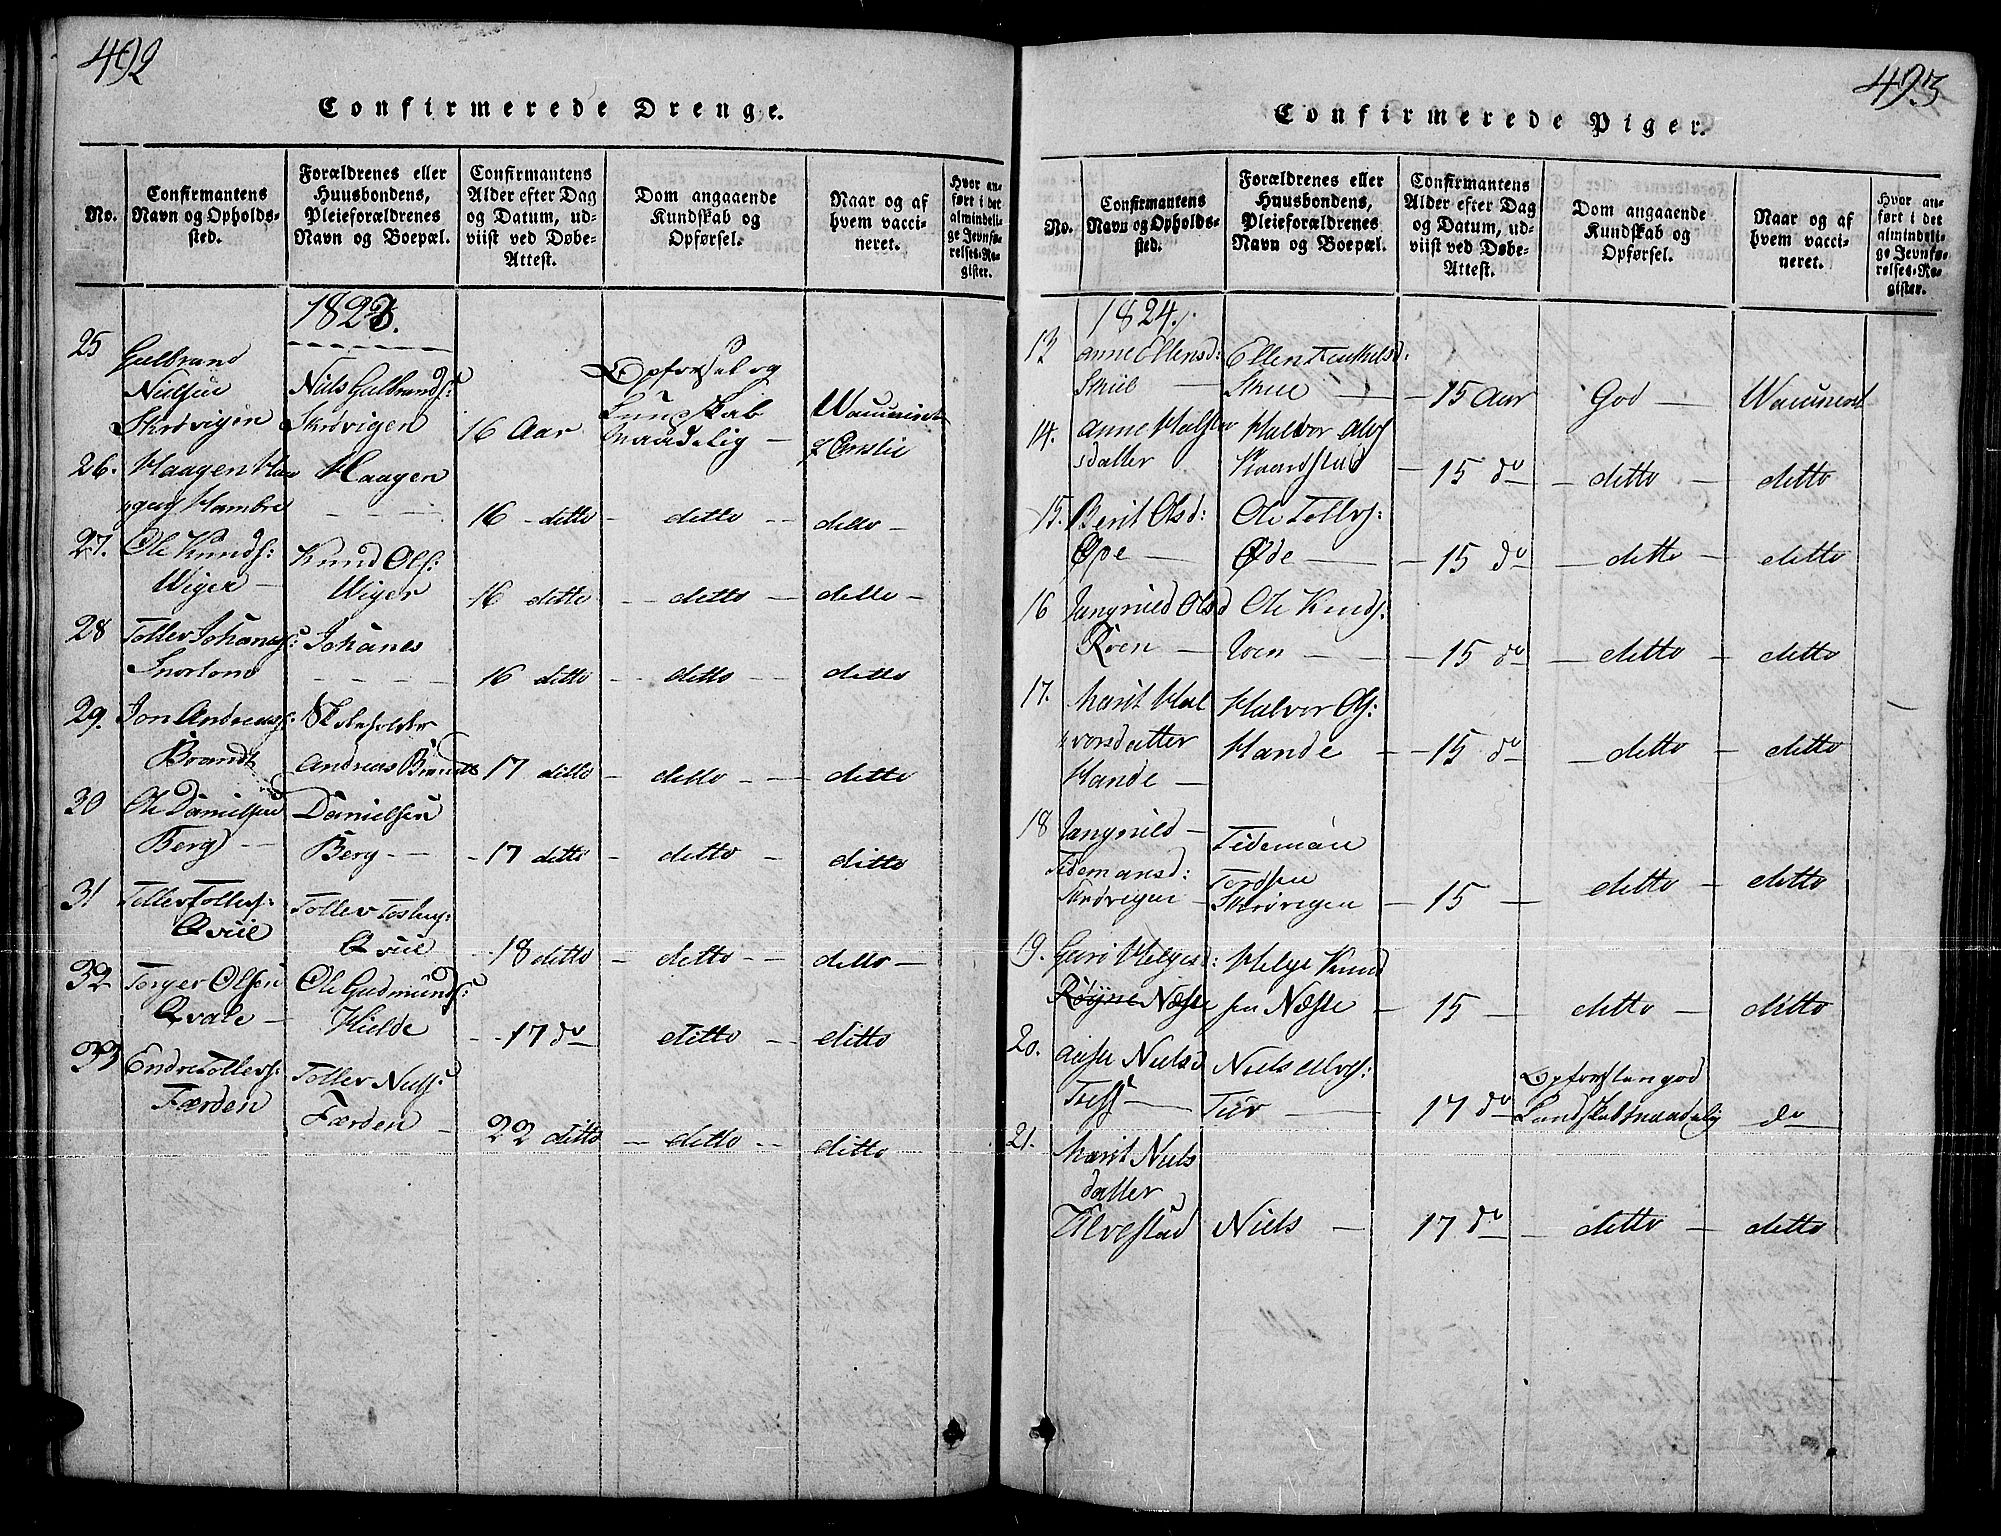 492
Confirmerede Drenge.
No.
Confirmantens
Navn og Opholds-
sted.
Forældrenes eller
Huusbondens,
Pleieforældrenes
Navn og Boepæl.
Confirmantens
Alder efter Dag
og Datum, ud-
viist ved Døbe-
Attest.
Dom angaaende
Kundskab og
Opførsel.
Naar og af
hvem vacci-
neret.
Hvor an-
ført i det
almindeli-
ge Jevnfø-
relses-Re-
gister.
1823.
25
Gulbrand
Nielsen
Skrøvigen
Niels Gulbrands:
Skrøvigen
16 Aar
Opførsel og
Kundskab
maadelig —
26. Haagen Haa
"gens Hambre
Haagen
16 - ditto - ditto -- ditto -
27. Ole Knuds:
Wiger -
Knud Ols:
Wiger
16 ditto -- ditto - ditto -
28 Tollev Johanes:
Johanes
16 ditto -- ditto -- ditto
29. Jon Andreas:
Brandt
Skoleholder
Andreas Brandt
17 ditto - ditto -- ditto
30 Ole Danielsen
Berg --
Danielsen
Berg --
- 17 ditto - ditto - ditto
31 Tollev Tollevs:
Qviie
Tollev
Qviie
- 18 ditto - ditto -- ditto -
32 Torger Olsen
Qvale -
Ole Gudmunds:
Kielde
-- 17 do - ditto - ditto
33 Endre Tollevs:
Færden
Tollev Niels:
Færden -
22 ditto -- ditto -- ditto
493
Confirmerede Piger.
No.
Confirmantens
Navn og Opholds-
sted.
Forældrenes eller
Huusbondens,
Pleieforældrenes
Navn og Boepæl.
Confirmantens
Alder efter Dag
og Datum, ud-
viist ved Døbe-
Attest.
Dom angaaende
Kundskab og
Opførsel.
Naar og af
hvem vacci-
neret.
Hvor an-
ført i det
almindeli-
ge Jevnfø-
relses-Re-
gister.
1824.
13 Anne Ellensd:
- 15 Aar God —
14. Anne Halvor
sdatter
Halvor
- 15 do - ditto - ditto
15. Berit Olsd:
Øde —
Ole Tollvs:
Øde —
- 15 do - ditto - ditto
16 Jangnild Olsd
Roen —
Ole Knuds:
Roen —
- 15 do - ditto - ditto
17. Marit Hal
"vorsdatter
Hande —
Halvor Ols:
Hande -
- 15 do - ditto - ditto
18 Jangnild —
Tidemansd:
Skrøvigen -
Tideman
Tordsen
Skrøvigen -
- 15 - ditto - ditto
19. Guro Helgesd:
Røyne Næste
Helge Knud
sen Næste -
15 — ditto - ditto
20. Aase Nielsd
Niels
17 do
Opførslen god
Kundskab maadelig
do
21.
Marit Niels
datter
Alvestad
Niels —
17 do - ditto - ditto